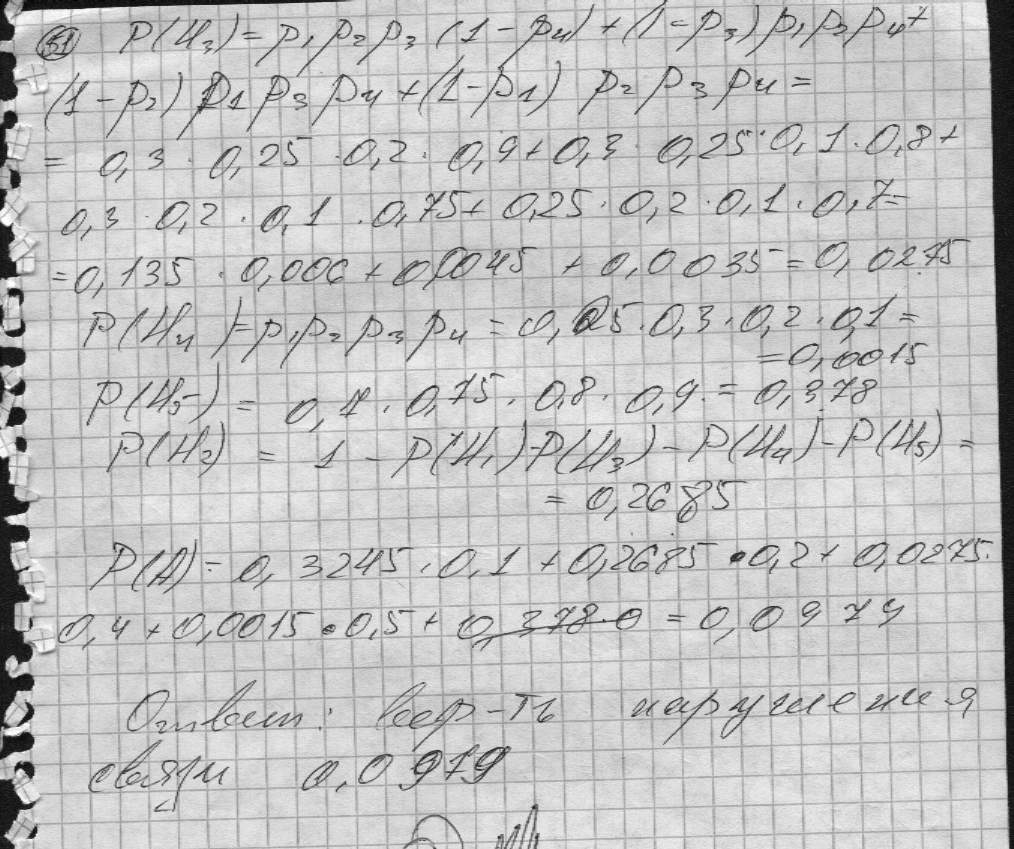 31 P(H₃) = p₁p₂p₃ (1 - p₄) + (1 - p₃) p₁p₂p₄ +
(1 - p₂) p₁ p₃ p₄ + (1 - p₁) p₂ p₃ p₄ =
= 0,3 · 0,25 · 0,2 · 0,9 + 0,3 · 0,25 · 0,1 · 0,8 +
0,3 · 0,2 · 0,1 · 0,75 + 0,25 · 0,2 · 0,1 · 0,7 =
= 0,135 · 0,006 + 0,0045 + 0,0035 = 0,0275
P(H₄) = p₁p₂p₃p₄ = 0,25 · 0,3 · 0,2 · 0,1 =
= 0,0015
P(H₅) = 0,7 · 0,75 · 0,8 · 0,9 = 0,378
P(H₂) = 1 - P(H₁) - P(H₃) - P(H₄) - P(H₅) =
= 0,2685
P(A) = 0,3245 · 0,1 + 0,2685 · 0,2 + 0,0275 ·
0,4 + 0,0015 · 0,5 + 0,378 · 0 = 0,0979
Ответ: вер-ть нарушения
связи 0,0979